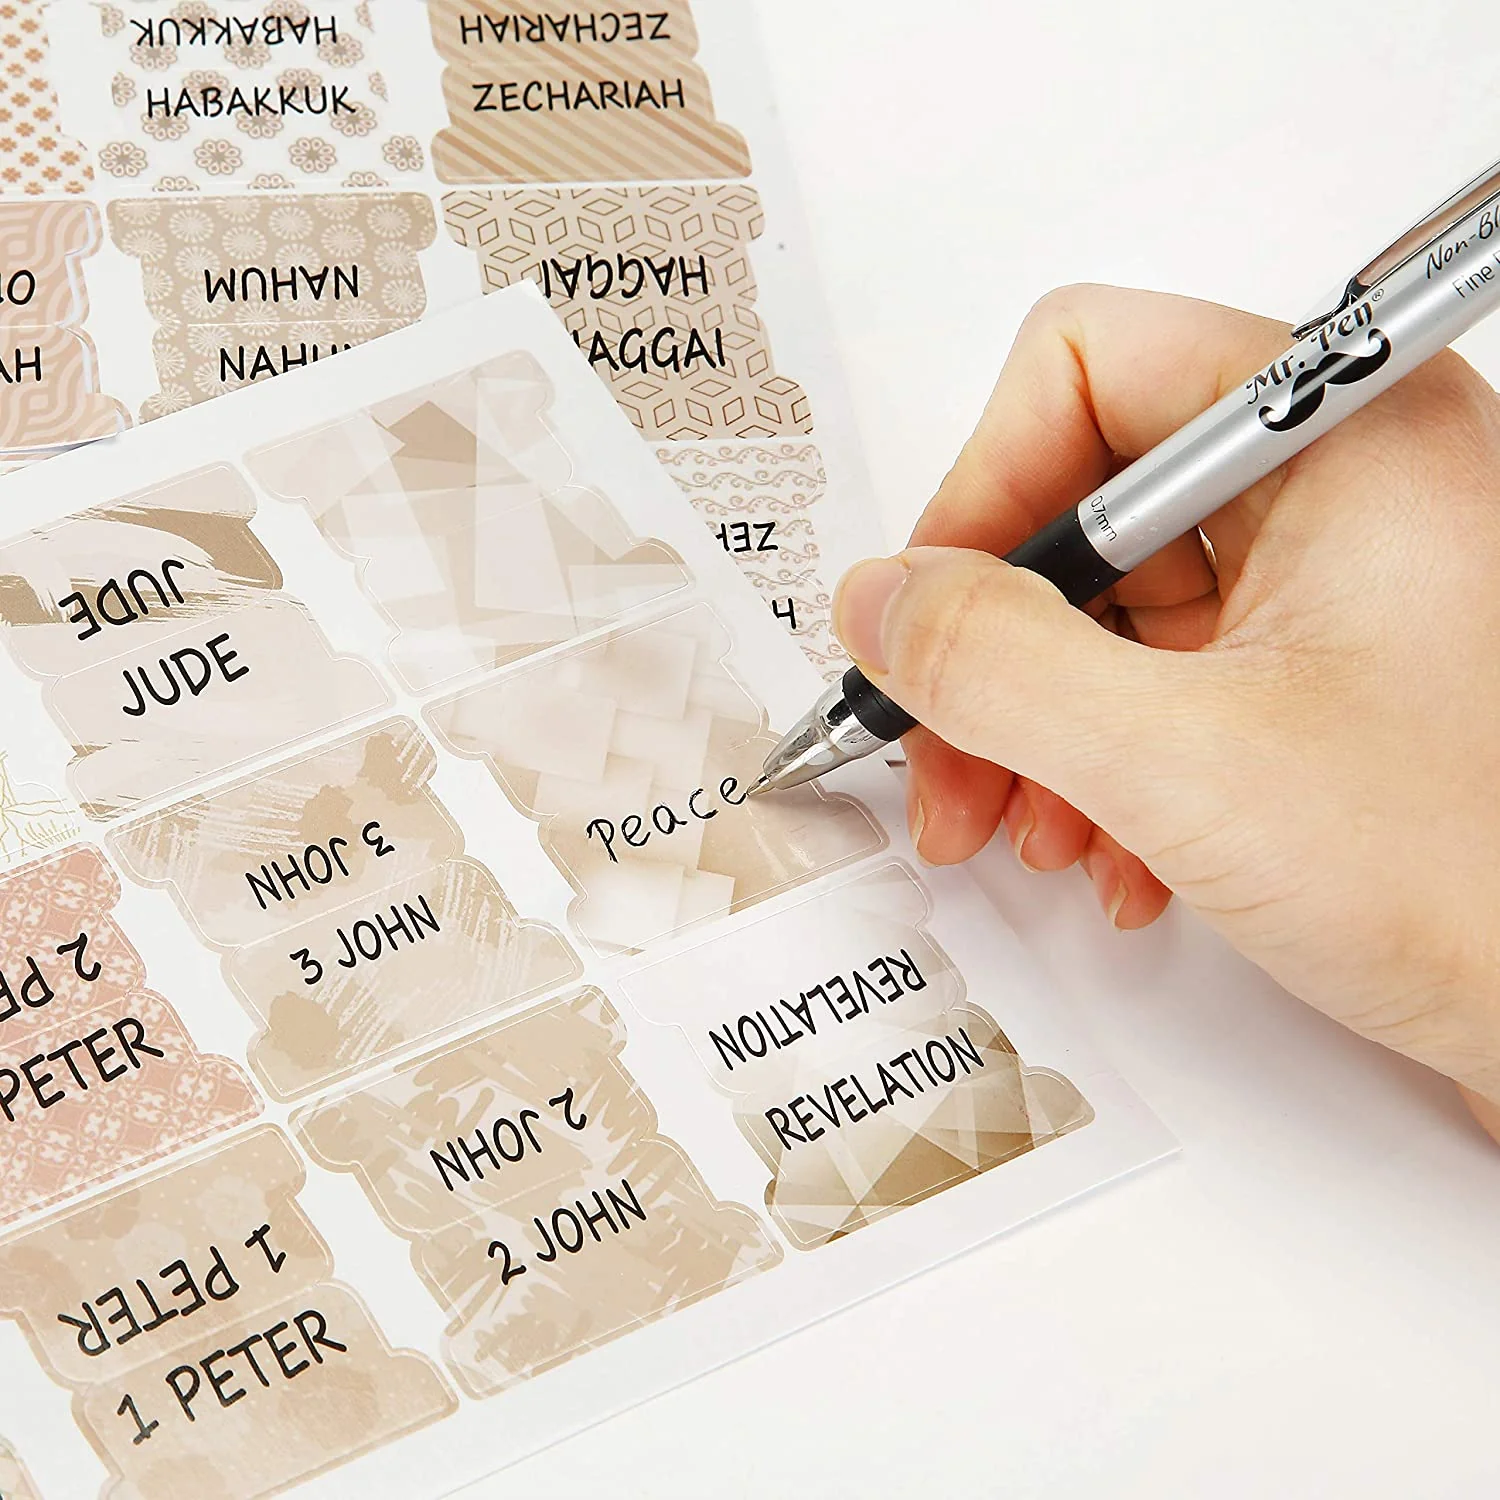 HABAKKUK
HABAKKUK
ZECHARIAH
ZECHARIAH
NAHUM
NAHUM
HAGGAI
HAGGAI
Non-Bl
Fine
Mr. Pen®
0.7mm
JUDE
JUDE
Peace
3 JOHN
3 JOHN
2 PE
PETER
REVELATION
REVELATION
2 JOHN
2 JOHN
1 PETER
1 PETER